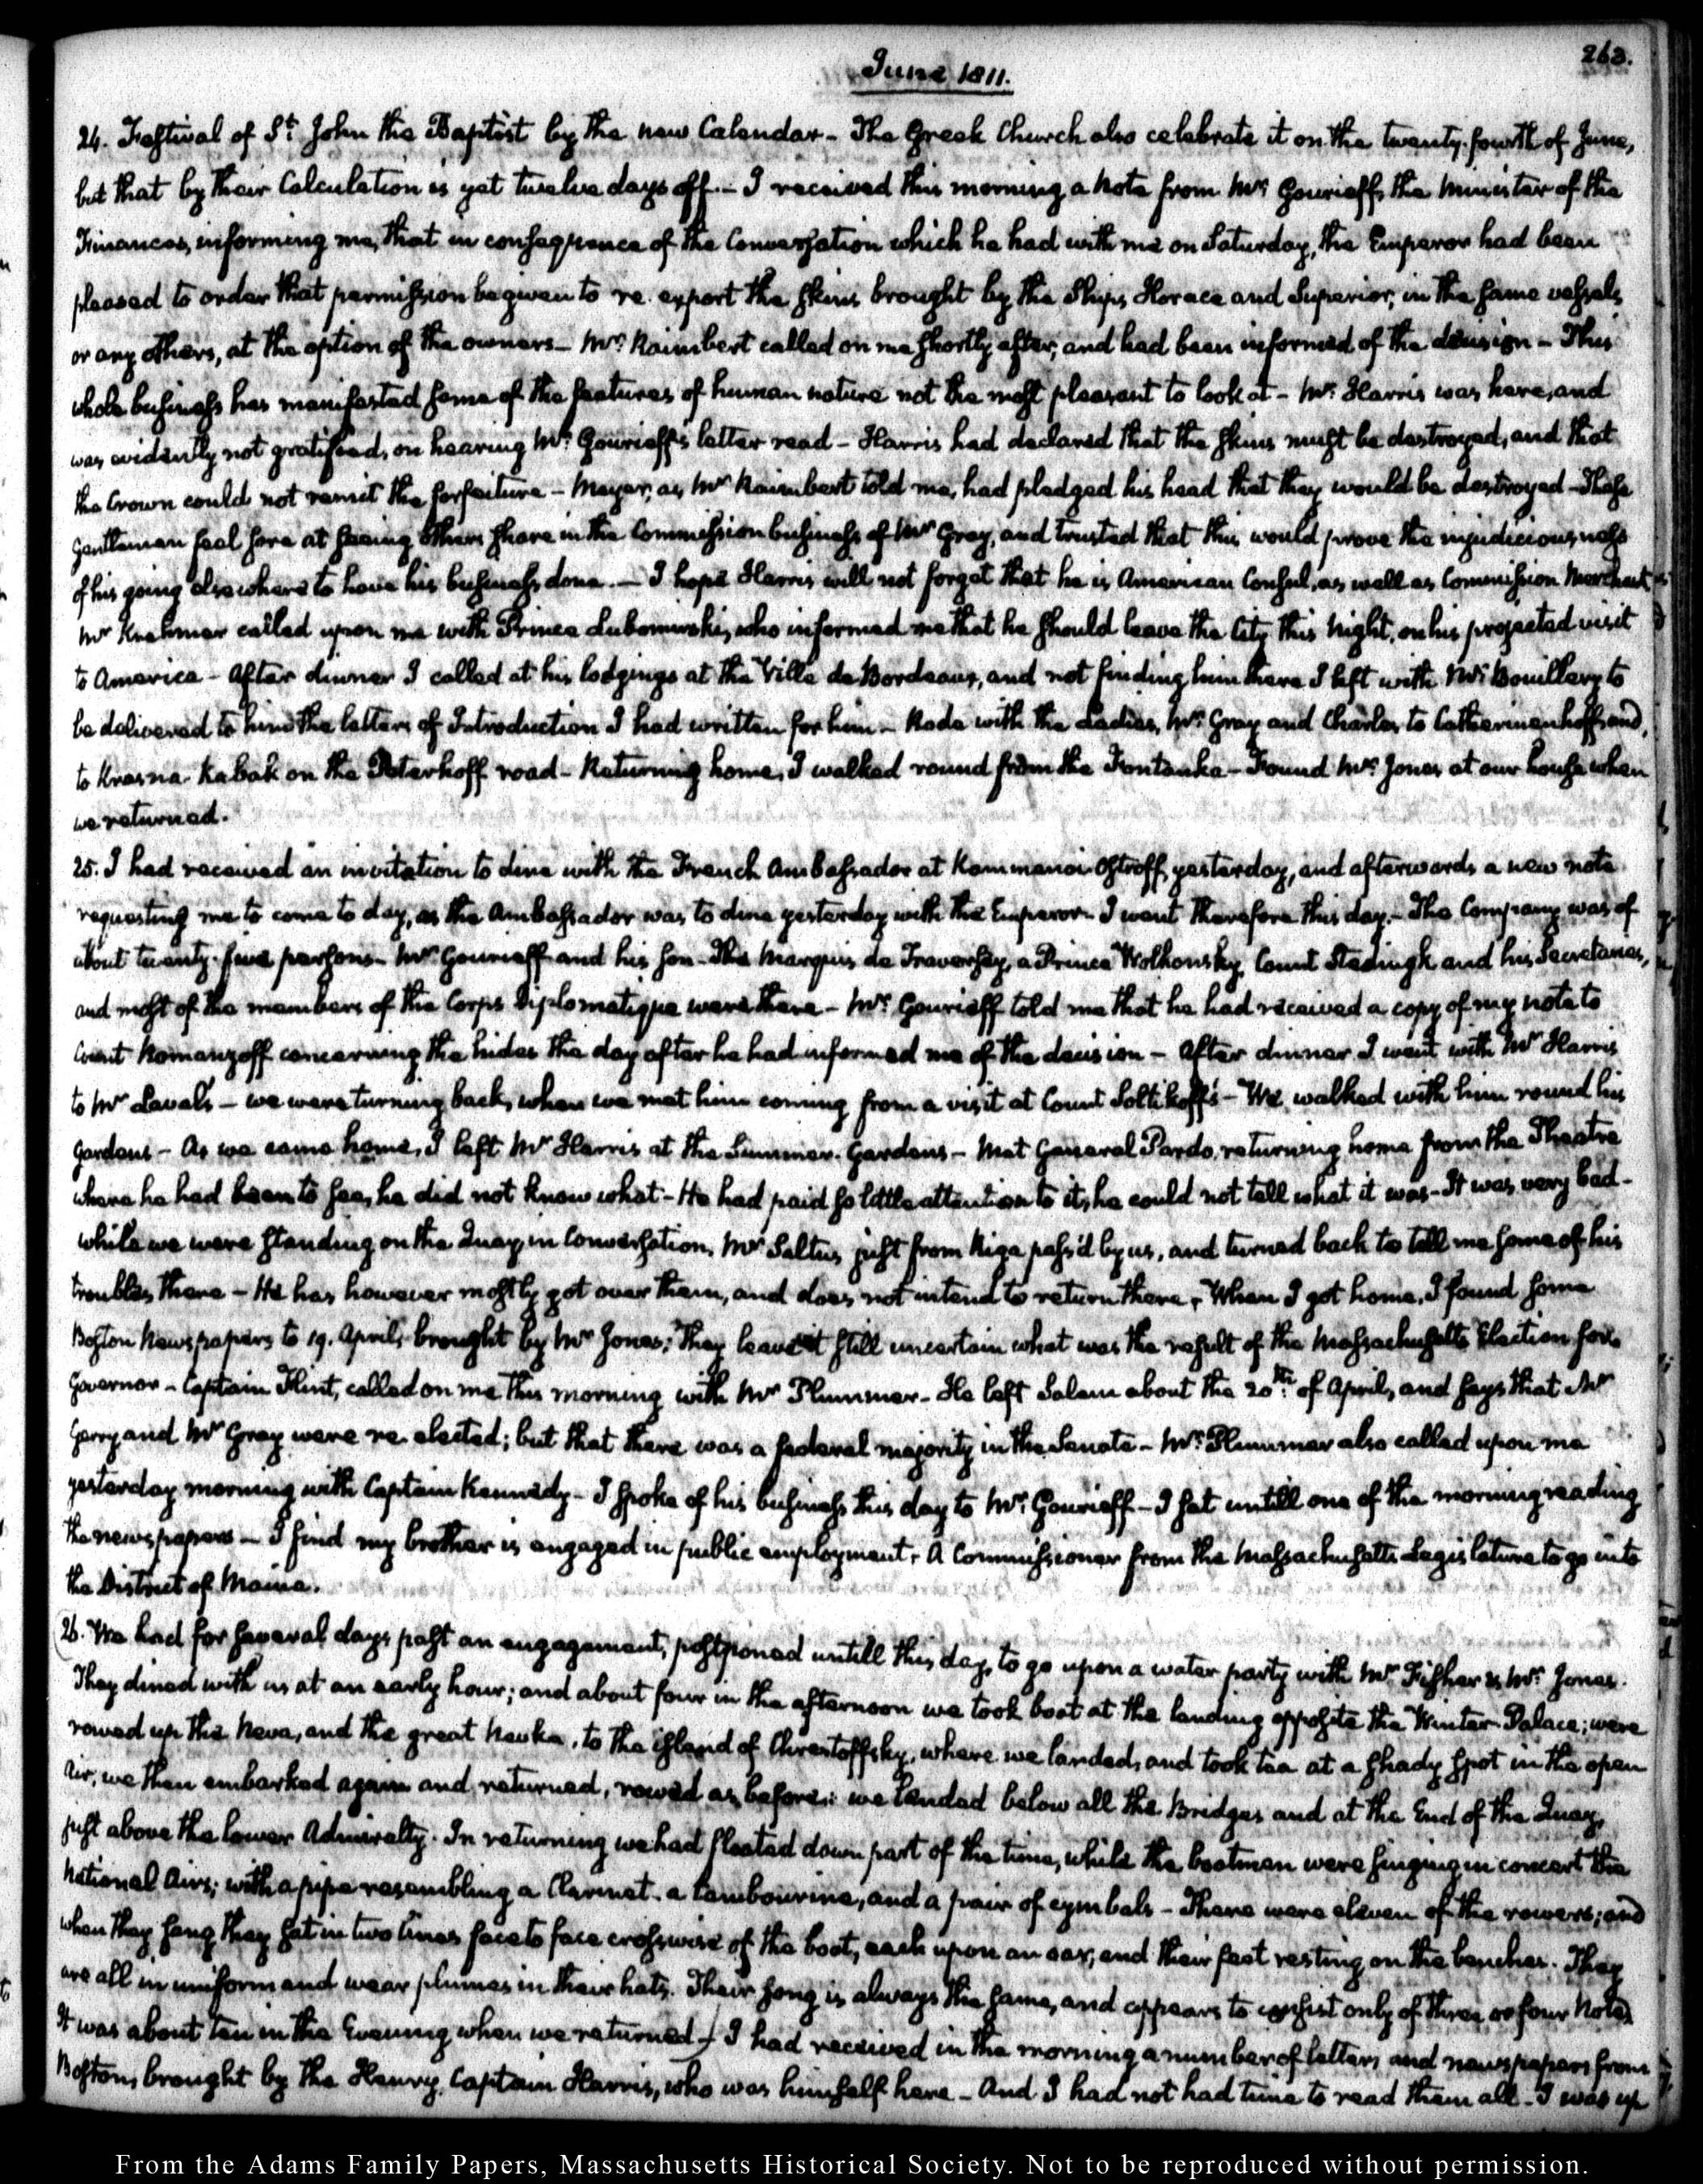 263.
June 1811.
24. Festival of St. John the Baptist by the new Calendar – The Greek Church also celebrate it on the twenty-fourth of June,
but that by their Calculation is yet twelve days off. – I received this morning a Note from Mr. Gourieff, the Minister of the
Finances, informing me, that in consequence of the Conversation which he had with me on Saturday, the Emperor had been
pleased to order that permission be given to re-export the skins brought by the Ships Horace and Superior, in the same vessels,
or any others, at the option of the owners – Mr. Raimbert called on me shortly after, and had been informed of the decision – This
whole business has manifested some of the features of human nature not the most pleasant to look at – Mr. Harris was here, and
was evidently not gratified, on hearing Mr. Gourieff's letter read – Harris had declared that the skins must be destroyed, and that
the Crown could not remit the forfeiture – Meyer, as Mr. Raimbert told me, had pledged his head that they would be destroyed – These
Gentlemen feel sore at seeing others share in the Commission business of Mr Gray, and trusted that this would prove the injudiciousness
of his going elsewhere to have his business done. – I hope Harris will not forget that he is American Consul, as well as Commission Merchant
Mr Krehmer called upon me with Prince Lubomirski, who informed me that he should leave the City this Night, on his projected visit
to America – After dinner I called at his lodgings at the Ville de Bordeaux, and not finding him there I left with Mr. Bouillery to
be delivered to him the letters of Introduction I had written for him – Rode with the Ladies, Mr. Gray and Charles to Catherinenhoff, and,
to Krasna-Kabak on the Peterhoff road – Returning home, I walked round from the Fontanka – Found Mr. Jones at our house when
we returned.
25. I had received an invitation to dine with the French Ambassador at Kammenoi-Ostroff, yesterday, and afterwards a new note
requesting me to come to day, as the Ambassador was to dine yesterday with the Emperor. I went therefore this day. – The Company was of
about twenty-five persons – Mr. Gourieff and his son – The Marquis de Traversay, a Prince Wolkonsky, Count Stedingk and his Secretaries,
and most of the members of the Corps Diplomatique were there – Mr. Gourieff told me that he had received a copy of my note to
Count Romanzoff concerning the hides the day after he had informed me of the decision – After dinner I went with Mr Harris
to Mr Laval's – we were turning back, when we met him coming from a visit at Count Soltikoff's – We walked with him round his
gardens – As we came home, I left Mr Harris at the Summer-Gardens – Met General Pardo, returning home from the Theatre
where he had been to see, he did not know what – He had paid so little attention to it, he could not tell what it was – It was very bad –
while we were standing on the Quay, in Conversation, Mr Saltus, just from Riga pass'd by us, and turned back to tell me some of his
troubles there – He has however mostly got over them, and does not intend to return there. When I got home, I found some
Boston Newspapers to 19. April, brought by Mr Jones; They leave it still uncertain what was the result of the Massachusetts Election for
Governor – Captain Flint, called on me this morning with Mr Plummer – He left Salem about the 20th. of April, and says that Mr
Gerry and Mr Gray were re-elected; but that there was a federal majority in the Senate – Mr. Plummer also called upon me
yesterday morning with Captain Kennedy – I spoke of his business this day to Mr. Gourieff – I sat untill one of the morning reading
the newspapers – I find my brother is engaged in public employment, A Commissioner from the Massachusetts Legislature to go into
the District of Maine.
26. We had for several days past an engagement, postponed untill this day, to go upon a water party with Mr. Fisher & Mr. Jones.
They dined with us at an early hour; and about four in the afternoon we took boat at the landing opposite the Winter-Palace; were
rowed up the Neva, and the great Nevka, to the island of Chrestoffsky, where we landed, and took tea at a shady spot in the open
air, we then embarked again and returned, rowed as before: we landed below all the Bridges and at the End of the Quay,
just above the lower Admiralty. In returning we had floated down part of the time, while the boatmen were singing in concert the
National Airs; with a pipe resembling a Clarinet, a tambourine, and a pair of cymbals – There were eleven of the rowers; and
when they sang they sat in two lines face to face crosswise of the boat, each upon an oar, and their feet resting on the benches. They
are all in uniform and wear plumes in their hats. Their song is always the same, and appears to consist only of three or four Notes
It was about ten in the Evening when we returned – I had received in the morning a number of letters and newspapers from
Boston, brought by the Henry, Captain Harris, who was himself here – And I had not had time to read them all – I was up
From the Adams Family Papers, Massachusetts Historical Society. Not to be reproduced without permission.